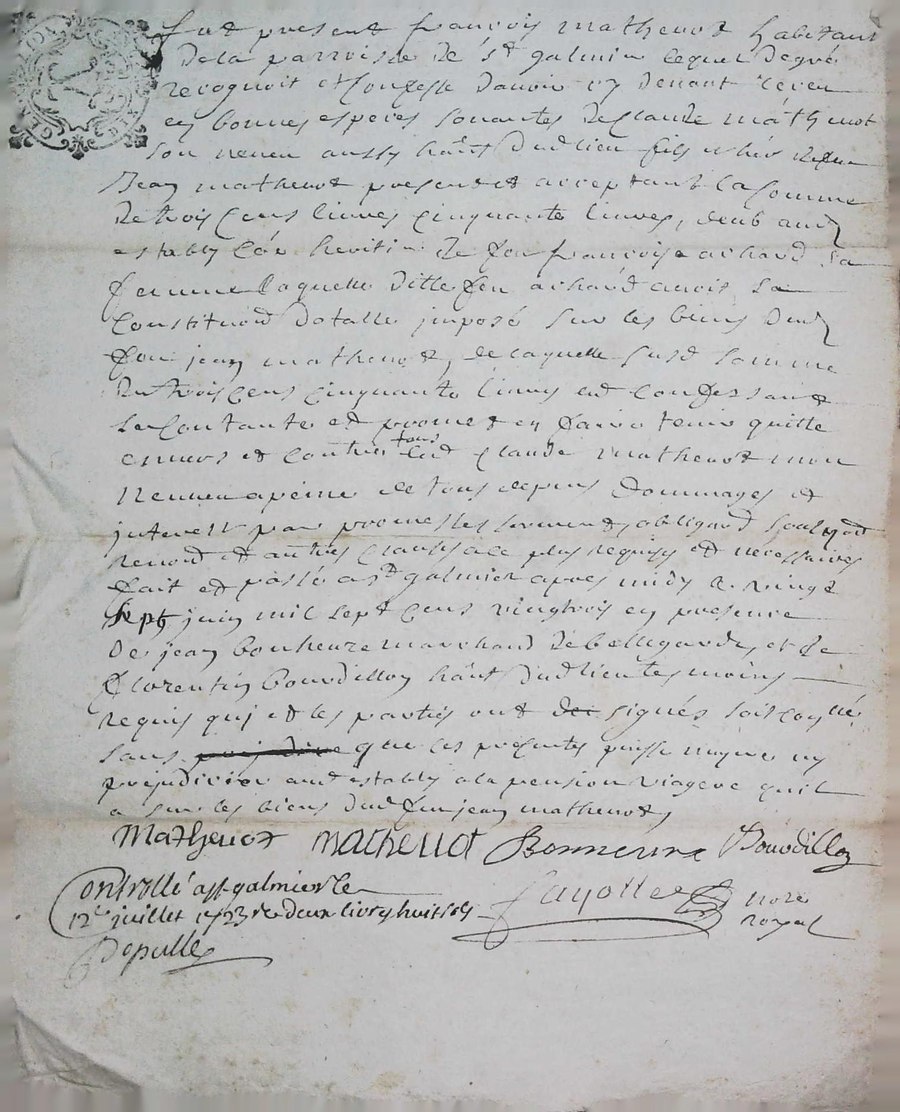 fut present francois mathevot habitant
de la parroisse de st galmier lequel de gré
recognoit et confesse d'avoir cy devant receu
en bonnes especes sonantes de claude mathevot
son neveu aussy habnt dud lieu fils de feu
Jean mathevot present et acceptant la somme
de trois cens livres cinquante livres, deub aud
estably heritier de feu francoise achard sa
femme laquelle ditte feu achard avoit sa
constituon dotalle imposé sur les biens dud
feu jean mathevot, de laquelle susd somme
de trois cens cinquante livres est confessant
se contante et promet en faire tenir quitte
envers et contre tous led claude mathevot mon
nepveu a peine de tous depens dommages et
interest par promesses serment obligaon
renon et autres clauses a ce plus requises et necessaires
fait et passé a st galmier apres midy le vingt
sept juin mil sept cens vingtrois en presence
de jean bonheure marchand de bellegarde, et de
florentin bourdillon habnt dud lieu tesmoins
requis quj et les parties ont signés
sans que les presentes puisse
prejudicier aud estably a la pension viagere quil
a sur les biens dud feu jean mathevot
Mathevot mathevot Bonneure Bourdillon
Controllé a st galmier le
12e juillet 1723 r deux livres huit sols
fayolle nore
royal
Depulle